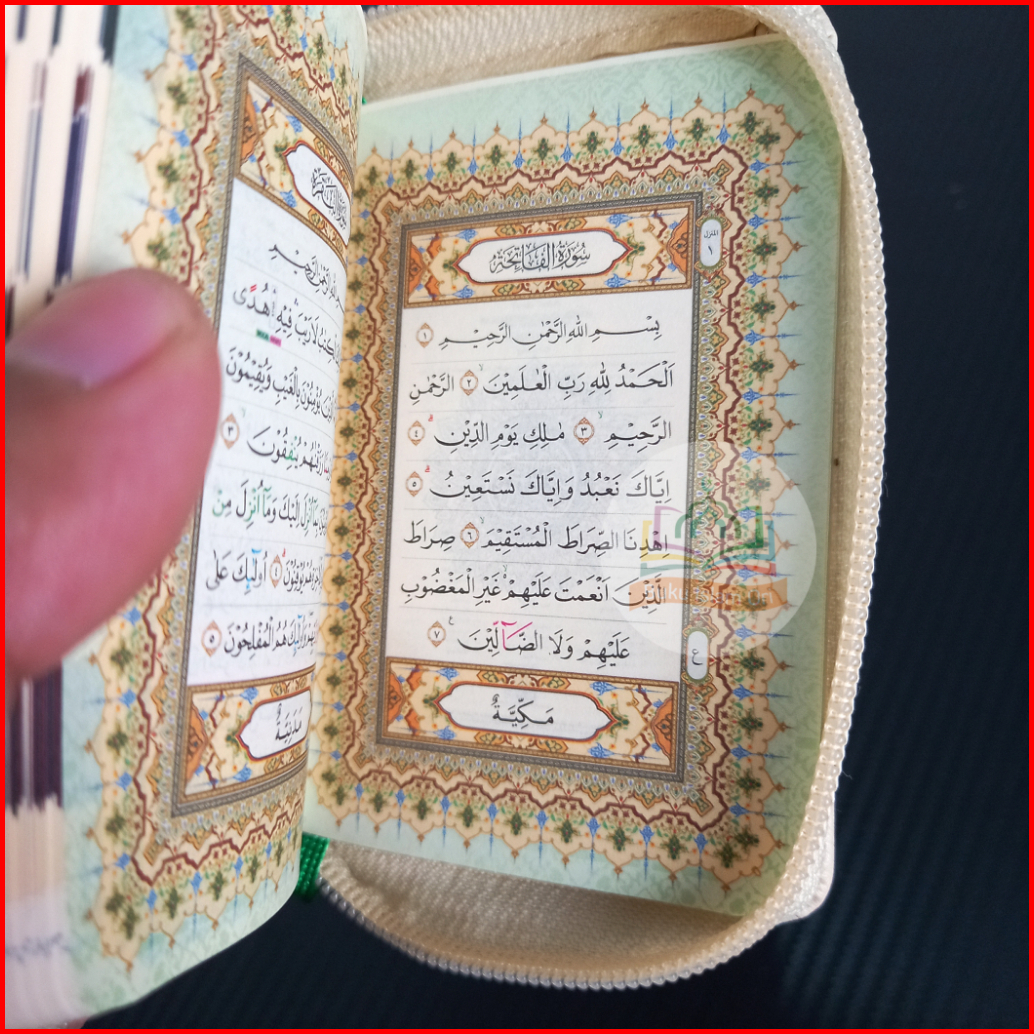 سُوْرَةُ الْفَاتِحَةِ
المنزل
١
بِسْمِ اللهِ الرَّحْمٰنِ الرَّحِيْمِ ١
اَلْحَمْدُ لِلّٰهِ رَبِّ الْعٰلَمِيْنَۙ ٢ الرَّحْمٰنِ
الرَّحِيْمِۙ ٣ مٰلِكِ يَوْمِ الدِّيْنِۗ ٤
اِيَّاكَ نَعْبُدُ وَاِيَّاكَ نَسْتَعِيْنُۗ ٥
اِهْدِنَا الصِّرَاطَ الْمُسْتَقِيْمَۙ ٦ صِرَاطَ
الَّذِيْنَ اَنْعَمْتَ عَلَيْهِمْۙ غَيْرِ الْمَغْضُوْبِ
عَلَيْهِمْ وَلَا الضَّاۤلِّيْنَ ࣖ ٧
ع
مَكِّيَّةٌ
لَا رَيْبَۛ فِيْهِۛ هُدًى
يُؤْمِنُوْنَ بِالْغَيْبِ وَيُقِيْمُوْنَ
رَزَقْنٰهُمْ يُنْفِقُوْنَ ٣
اُنْزِلَ اِلَيْكَ وَمَآ اُنْزِلَ مِنْ
هُمْ يُوْقِنُوْنَۗ ٤ اُولٰۤىِٕكَ عَلٰى
وَاُولٰۤىِٕكَ هُمُ الْمُفْلِحُوْنَ ٥
مَدَنِيَّةٌ